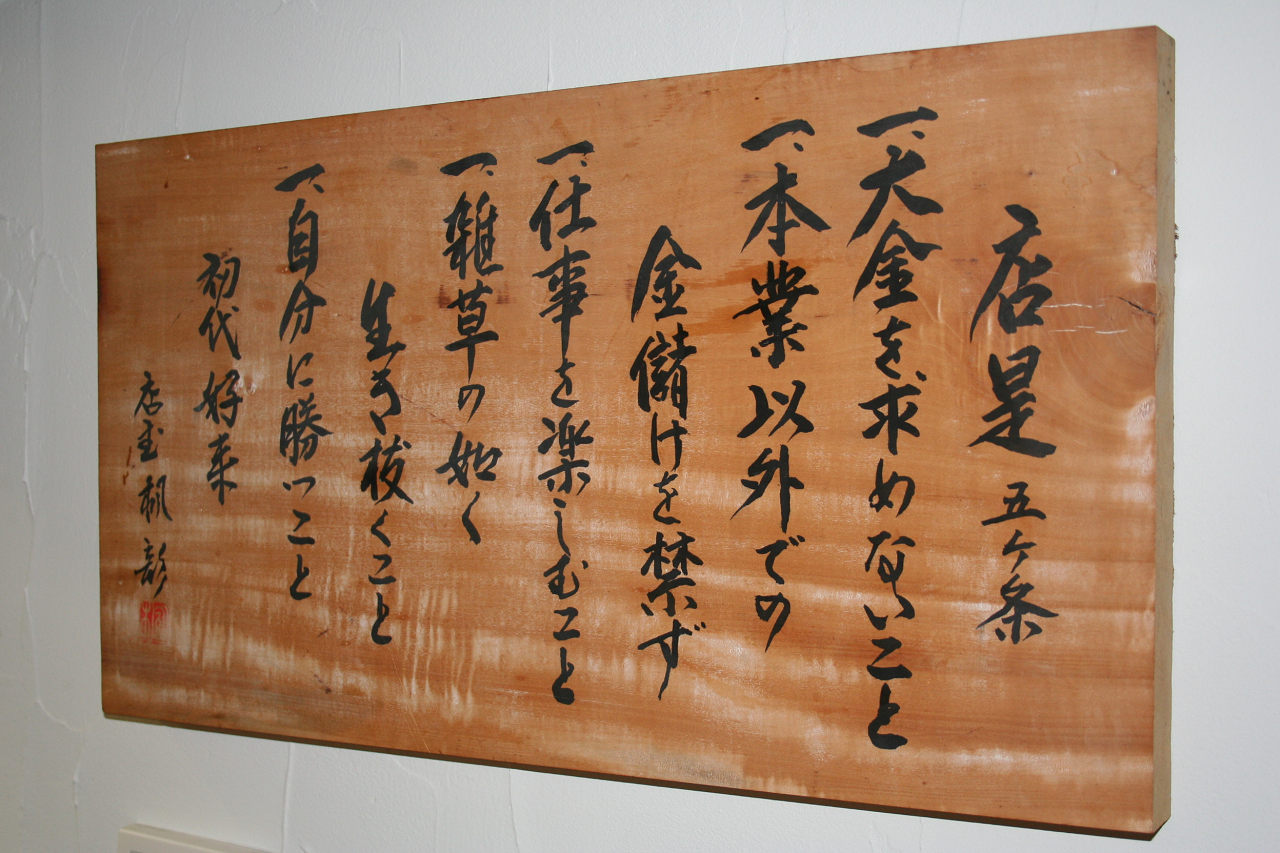 店是 五ヶ条
一、大金を求めないこと
一、本業以外での
金儲けを禁ず
一、仕事を楽しむこと
一、雑草の如く
生き抜くこと
一、自分に勝つこと
初代 好来
店主 楓彰